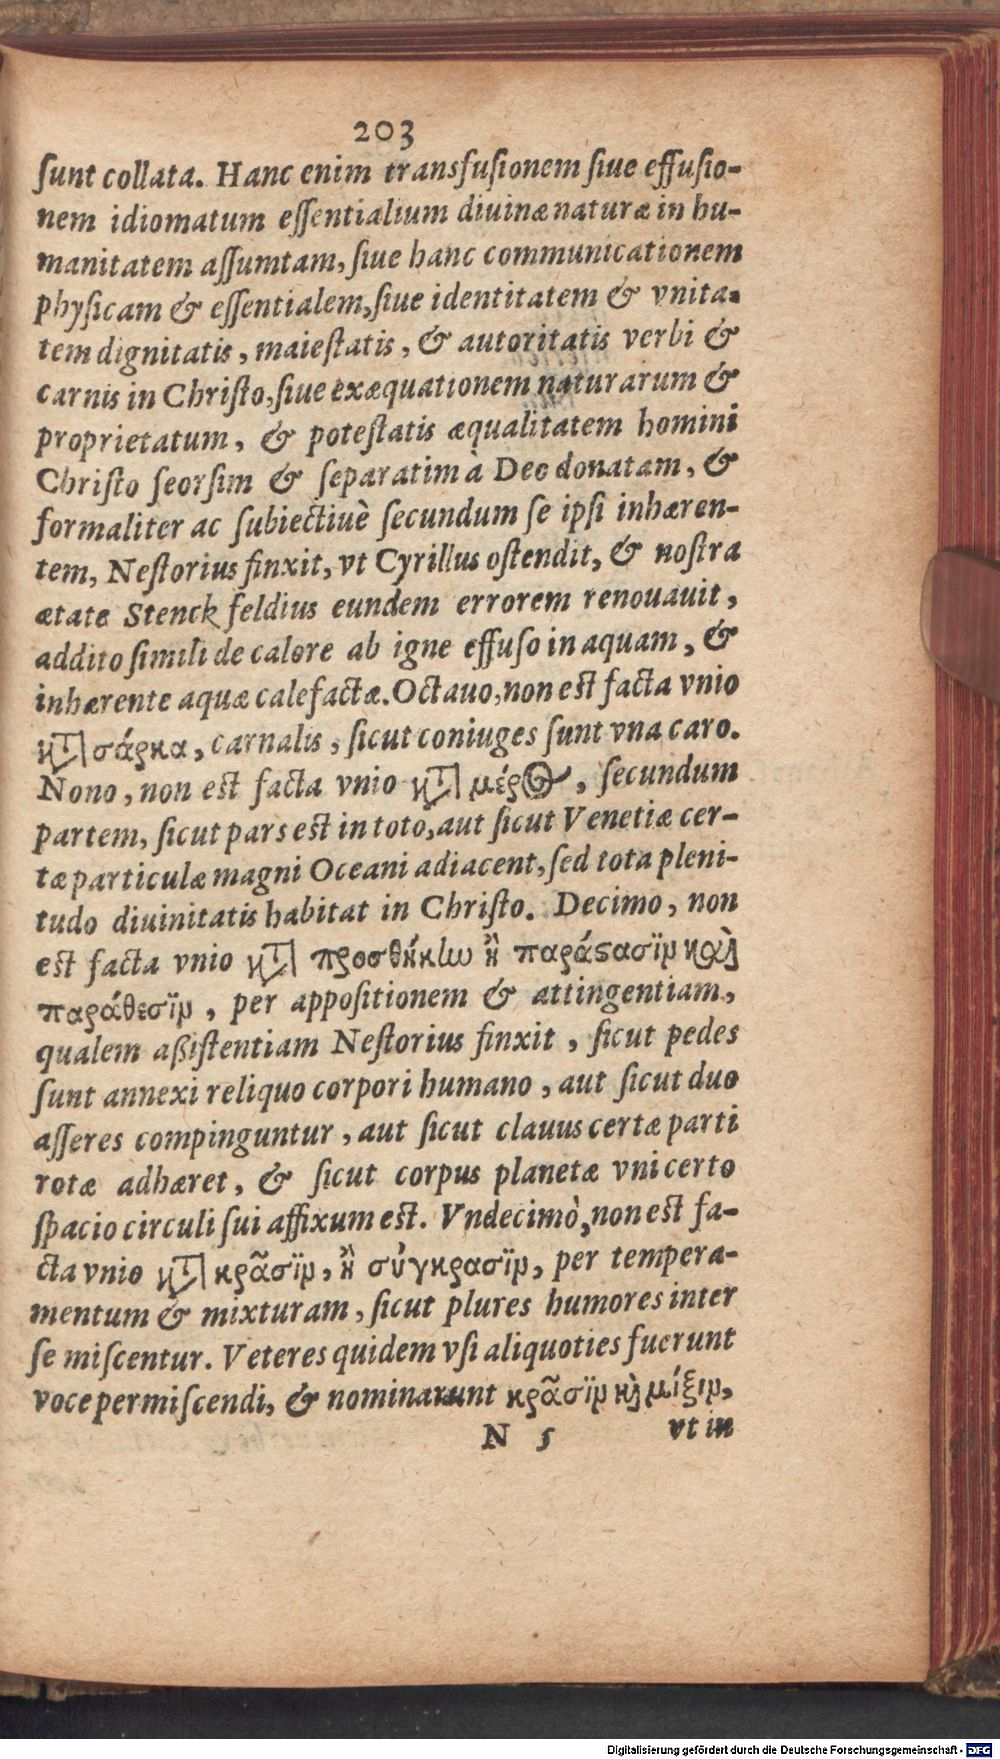 203
ſunt collata. Hanc enim transfuſionem ſiue effuſio-
nem idiomatum eſſentialium diuinæ naturæ in hu-
manitatem aſſumtam, ſiue hanc communicationem
phyſicam & eſſentialem, ſiue identitatem & vnita-
tem dignitatis, maieſtatis, & autoritatis verbi &
carnis in Chriſto, ſiue exæquationem naturarum &
proprietatum, & poteſtatis æqualitatem homini
Chriſto ſeorſim & ſeparatim à Deo donatam, &
formaliter ac ſubiectiuè ſecundum ſe ipſi inhæren-
tem, Neſtorius finxit, vt Cyrillus oſtendit, & noſtra
ætate Stenckfeldius eundem errorem renouauit,
addito ſimili de calore ab igne effuſo in aquam, &
inhærente aquæ calefactæ. Octauo, non eſt facta vnio
κατὰ σάρκα, carnalis, ſicut coniuges ſunt vna caro.
Nono, non eſt facta vnio κατὰ μέρος, ſecundum
partem, ſicut pars eſt in toto, aut ſicut Venetiæ cer-
tæ particulæ magni Oceani adiacent, ſed tota pleni-
tudo diuinitatis habitat in Chriſto. Decimo, non
eſt facta vnio κατὰ προσθήκην ἢ παράστασϊν καὶ
παράθεσϊν, per appoſitionem & attingentiam,
qualem aßiſtentiam Neſtorius finxit, ſicut pedes
ſunt annexi reliquo corpori humano, aut ſicut duo
aſſeres compinguntur, aut ſicut clauus certæ parti
rotæ adhæret, & ſicut corpus planetæ vni certo
ſpacio circuli ſui affixum eſt. Vndecimò, non eſt fa-
cta vnio κατὰ κρᾶσϊν, ἢ σύγκρασϊν, per tempera-
mentum & mixturam, ſicut plures humores inter
ſe miſcentur. Veteres quidem vſi aliquoties fuerunt
voce permiſcendi, & nominarunt κρᾶσϊν καὶ μίξιν,
N 5 vt in
Digitalisierung gefördert durch die Deutsche Forschungsgemeinschaft - DFG